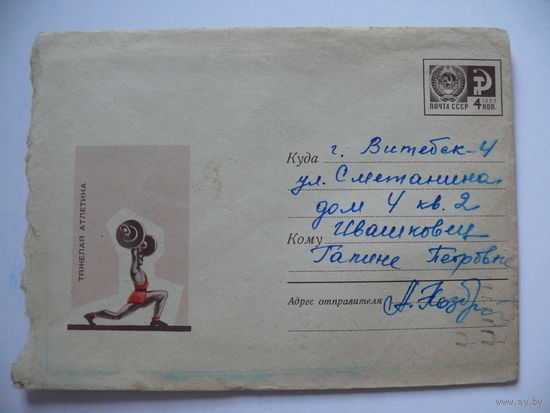 ПОЧТА СССР
1966
4 КОП.
ТЯЖЕЛАЯ АТЛЕТИКА
Куда г. Витебск-4
ул. Сметанина
дом 4 кв. 2
Кому Ивашковец
Галине Петровне
Адрес отправителя
www.ay.by